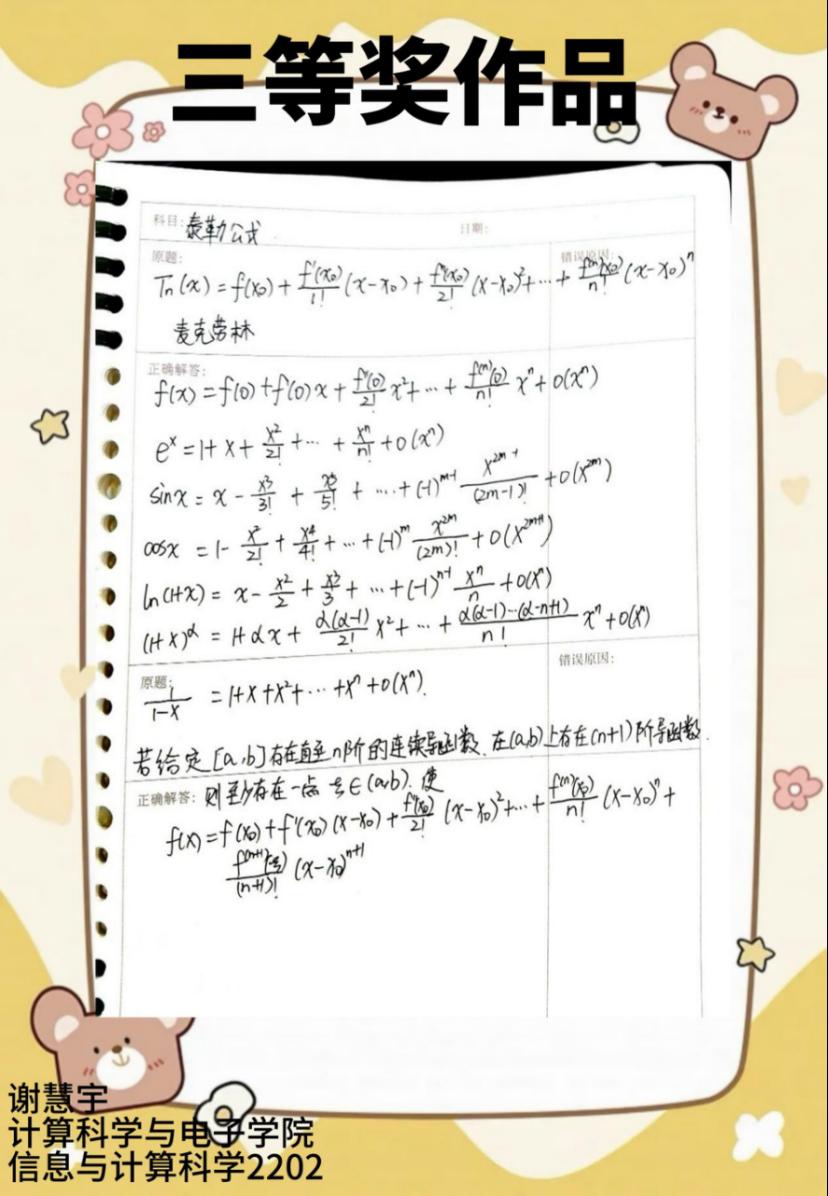 三等奖作品
科目: 泰勒公式 日期:
原题: 错误原因:
Tn(x) = f(x₀) + f'(x₀)/1! (x-x₀) + f''(x₀)/2! (x-x₀)² + … + f⁽ⁿ⁾(x₀)/n! (x-x₀)ⁿ
麦克劳林
正确解答:
f(x) = f(0) + f'(0)x + f''(0)/2! x² + … + f⁽ⁿ⁾(0)/n! xⁿ + o(xⁿ)
eˣ = 1 + x + x²/2! + … + xⁿ/n! + o(xⁿ)
sinx = x - x³/3! + x⁵/5! + … + (-1)ᵐ⁻¹ x²ᵐ⁻¹/(2m-1)! + o(x²ᵐ)
cosx = 1 - x²/2! + x⁴/4! + … + (-1)ᵐ x²ᵐ/(2m)! + o(x²ᵐ⁺¹)
ln(1+x) = x - x²/2 + x³/3 + … + (-1)ⁿ⁻¹ xⁿ/n + o(xⁿ)
(1+x)^α = 1 + αx + α(α-1)/2! x² + … + α(α-1)…(α-n+1)/n! xⁿ + o(xⁿ)
原题: 错误原因:
1/(1-x) = 1 + x + x² + … + xⁿ + o(xⁿ).
若给定[a,b]存在直至n阶的连续导函数、在(a,b)上存在(n+1)阶导函数.
正确解答: 则至少存在一点 ξ∈(a,b). 使
f(x) = f(x₀) + f'(x₀)(x-x₀) + f''(x₀)/2! (x-x₀)² + … + f⁽ⁿ⁾(x₀)/n! (x-x₀)ⁿ +
f⁽ⁿ⁺¹⁾(ξ)/(n+1)! (x-x₀)ⁿ⁺¹
谢慧宇
计算科学与电子学院
信息与计算科学2202